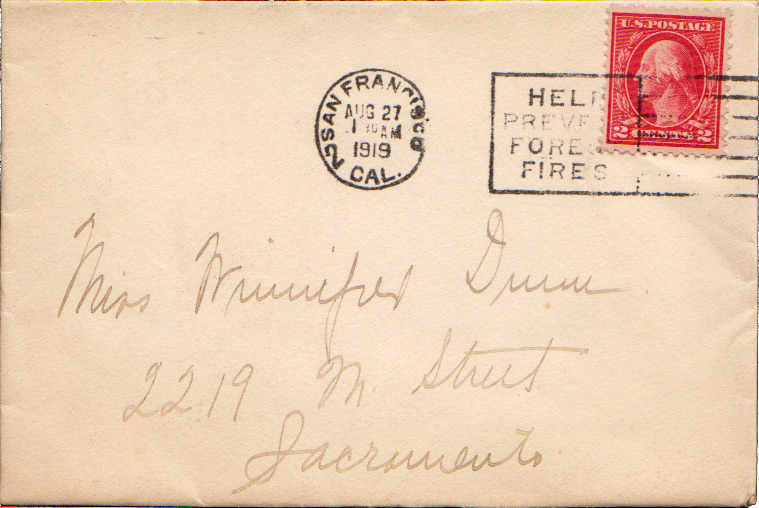 U.S. POSTAGE
2 CENTS 2
SAN FRANCISCO
AUG 27
AM
1919
CAL.
2
HELP
PREVE
FORES
FIRES
Miss Winnifred Dunn
2219 M. Street
Sacramento